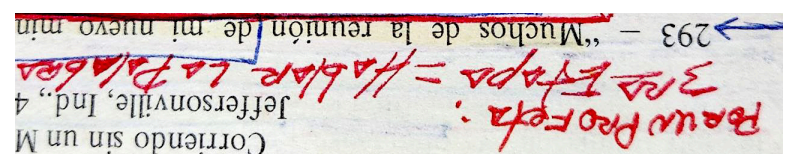 Corriendo sin un M
POR UN PROFeta:
Jeffersonville, Ind., 4
3RA Etapa = HablaR La PalabRa
293 – “Muchos de la reunión de mi nuevo min